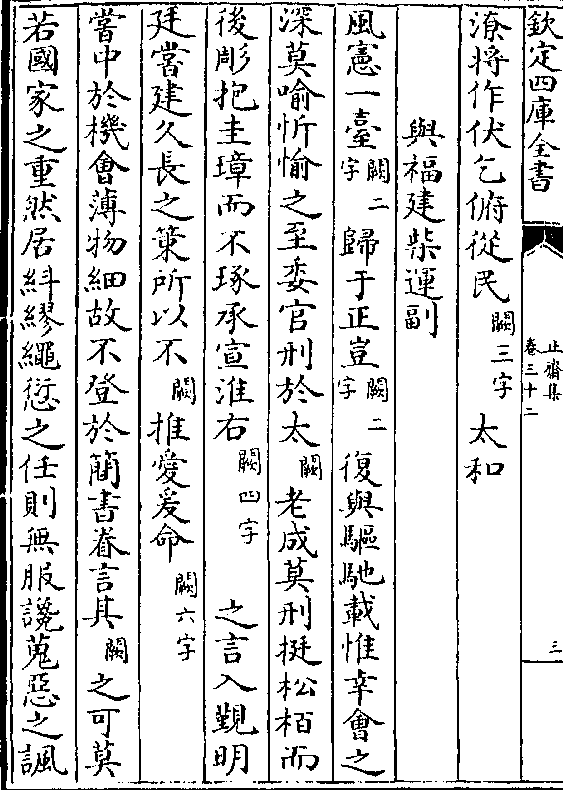 欽定四庫全書
止齋集
卷三十二
三
潦將作伏乞俯從民闕三字太和
與福建柴運副
風憲一臺闕二字歸于正豈闕二字復與驅馳載惟幸會之
深莫喻忻愉之至委官刑於太闕老成莫刑挺松栢而
後彫抱圭璋而不琢承宣淮右闕四字之言入覲明
廷當建久長之策所以不闕推愛爰命闕六字
嘗中於機會薄物細故不登於簡書眷言其闕之可莫
若國家之重然居糾繆繩愆之任則無服讒蒐惡之諷